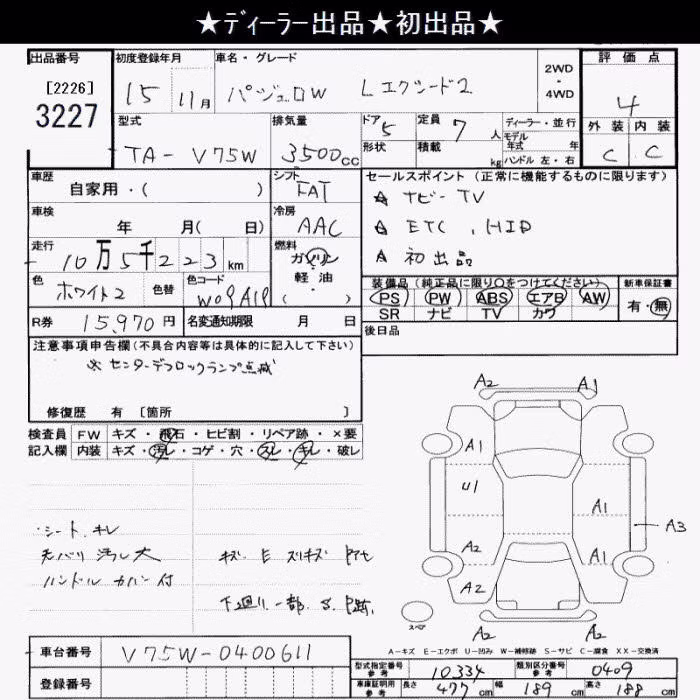 ★ディーラー出品★初出品★
出品番号
[2226]
3227
初度登録年月
15 11月
車名・グレード
パジェロW Lエクシード2
2WD
・
4WD
評価点
4
外装 内装
C C
型式
TA- V75W
排気量
3500cc
ドア 5
形状
定員 7人
積載 kg
ディーラー・並行
モデル年式 年
ハンドル 左・右
車歴
自家用・( )
シフト
FAT
車検
年 月( 日)
冷房
AAC
走行
10万5千223km
燃料
ガソリン
・
軽油
( )
色
ホワイト2
色替
色コード
W09A19
R券 15,970円
名変通知期限 月 日
セールスポイント(正常に機能するものに限ります)
☆ ナビーTV
☆ ETC、HID
☆ 初出品
装備品(純正品に限り○をつけてください)
PS PW ABS エアB AW
SR ナビ TV カワ
新車保証書
有・無
後日品
注意事項申告欄(不具合内容等は具体的に記入して下さい)
※センターデフロックランプ点滅
修復歴 有 [箇所 ]
検査員
記入欄
FW キズ・飛石・ヒビ割・リペア跡・×要
内装 キズ・汚レ・コゲ・穴・スレ・キレ・破レ
・シート、キレ
天バリ 汚レ大
ハンドル カバー付
キズ E スリキズ
下廻り、一部 S
A2 A1
A1
U1
A1
A3
A2
A1
A2
A2 A2
スペア
A-キズ E-エクボ U-凹み W-補修跡 S-サビ C-腐食 XX-交換済
車台番号 V75W-0400611
登録番号
型式指定番号
参考
10334
類別区分番号
参考
0409
車庫証明用
参考
長さ 477cm
幅 189cm
高さ 188cm